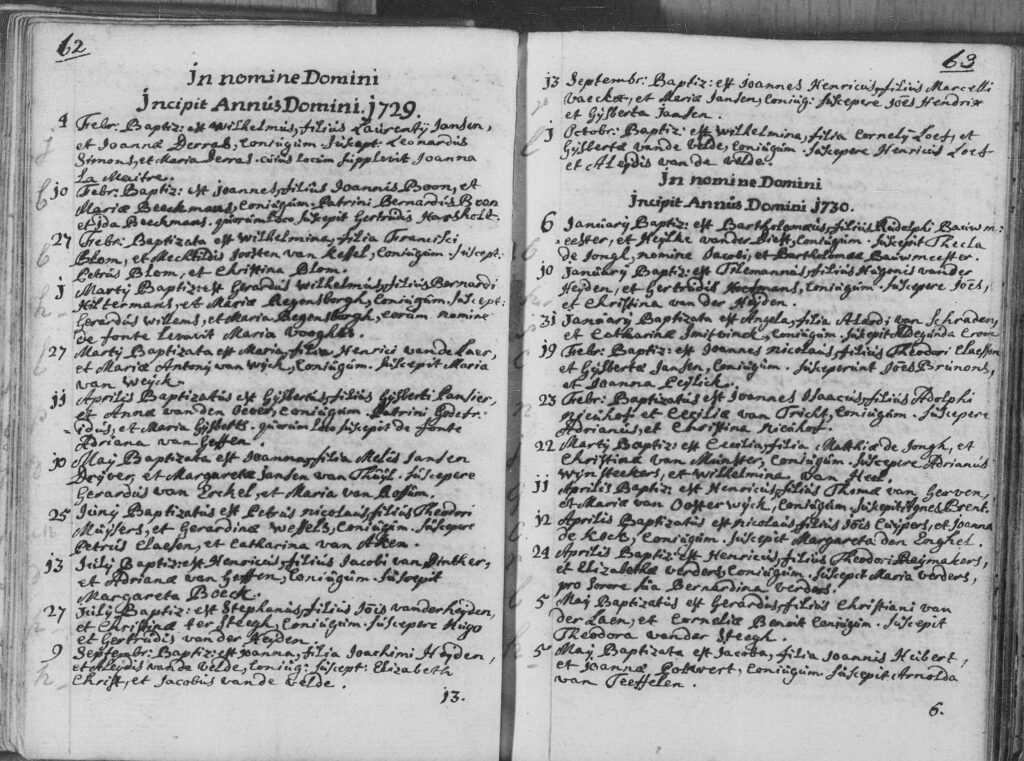 62
In nomine Domini
Incipit Annus Domini 1729.
4 Febr: Baptiz: est Wilhelmus, filius Laurentij Jansen,
et Joannæ Derras, Coniugum. Suscept: Leonardus
Simons, et Maria Derras. cuius locum supplevit Joanna
La Maitre.
10 Febr: Baptiz: est Joannes, filius Joannis Boon, et
Mariæ Beeckmans, Coniugum. Patrini Bernardus Boon
et Ida Beeckmans. quorum loco suscepit Gertrudis
27 Febr: Baptizata est Wilhelmina, filia Francisci
Blom, et Mechtildis Joosten van Kessel, Coniugum. suscept:
Petrus Blom, et Christina Blom.
1 Martij Baptiz: est Gerardus Wilhelmus, filius Bernardi
Hiltermans, et Mariæ Regensborgh, Coniugum. Suscept:
Gerardus Willems, et Maria Regensborgh, eorum nomine
de fonte levavit Maria Vooghts.
27 Martij Baptizata est Maria, filia Henrici van de Laer,
et Mariæ Antonij van Wijck, Coniugum. Suscepit Maria
van Weijck.
11 Aprilis Baptizatus est Gijsbertus, filius Gijsberti Pansier,
et Annæ van den Oever, Coniugum. Patrini Godefri-
dus, et Maria Gijsberts. quorum loco suscepit de fonte
Adriana van Geffen.
10 Maij Baptizata est Joanna, filia Melis Jansen
Drijver, et Margaretæ Jansen van Thuijl. Suscepere
Gerardus van Erckel, et Maria van Rossum.
25 Junij Baptizatus est Petrus nicolaus, filius Theodori
Muijsers, et Gerardinæ Wessels, Coniugum. Suscepere
Petrus Claesen, et Catharina van Aken.
13 Julij Baptiz: est Henricus, filius Jacobi van Dinther,
et Adrianæ van Geffen, Coniugum. Suscepit
Margareta Boeck.
27 Julij Baptiz: est Stephanus, filius Jois vanderheijden,
et Christinæ ter Steegh, Coniugum. Suscepere Hugo
et Gertrudis van der Heyden.
9 Septembr: Baptiz: est Joanna, filia Joachimi Heijden,
et Aleydis van de Velde, Coniug: Suscept: Elizabeth
Christ, et Jacobus van de Velde.
13.
63
13 Septembr: Baptiz: est Joannes Henricus, filius Marcelli
Vaeckx, et Mariæ Jansen, Coniug: Suscepere Joes Hendrix
et Gijsberta Jansen.
1 Octobr: Baptiz: est Wilhelmina, filia Cornelij Loef, et
Gijsbertæ van de Velde, Coniugum. Suscepere Henricus Loef
et Aleijdis van de Velde.
In nomine Domini
Incipit Annus Domini 1730.
6 Januarij Baptiz: est Bartholomæus, filius Rudolphi Bauwm-
eester, et Heijlke van der Diest, Coniugum. Suscepit Thecla
de Jongh, nomine Jacobi, et Bartholomææ Bauwmeester.
10 Januarij Baptiz: est Tilemannus, filius Hugonis vander
Heyden, et Gertrudis Hoefmans, Coniugum. Suscepere Joes,
et Christina van der Heyden.
31 Januarij Baptizata est Angela, filia Alardi van Schraden,
et Catharinæ Smitvinck, Coniugum. Suscepit Segunda Crom
19 Febr: Baptiz: est Joannes nicolaus, filius Theodori Claessen
et Gijsbertæ Jansen, Coniugum. Susceperunt Joes Brunons,
et Joanna Peijlick.
23 Febr: Baptizatus est Joannes Isaacus, filius Adolphi
Nieuhof et Ceciliæ van Tricht, Coniugum. Suscepere
Adrianus, et Christina Nieuhof.
22 Martij Baptiz: est Cecilia, filia Matthiæ de Jongh, et
Christinæ van Munster, Coniugum. Suscepere Adrianus
Wijnsteekers, et Wilhelmina van Heel.
11 Aprilis Baptiz: est Henricus, filius Thomæ van Gerven,
et Mariæ van Oosterwijck, Coniugum. Suscepit Agnes Brent.
12 Aprilis Baptizatus est nicolaus, filius Jois Cuijpers, et Joannæ
de Kock, Coniugum. Suscepit Margareta den Enghel.
24 Aprilis Baptiz: est Henricus, filius Theodori Reijmakers,
et Elizabethæ Verders, Coniugum. Suscepit Maria Verders,
pro sorore sua Bernardina Verders.
5 Maij Baptizatus est Gerardus, filius Christiani van
der Laen, et Corneliæ Benoit Coniugum. Suscepit
Theodora vander Steegh.
5 Maij Baptizata est Jacoba, filia Joannis Heibert,
et Joannæ Potwert, Coniugum. Suscepit Arnolda
van Teeffelen.
6.